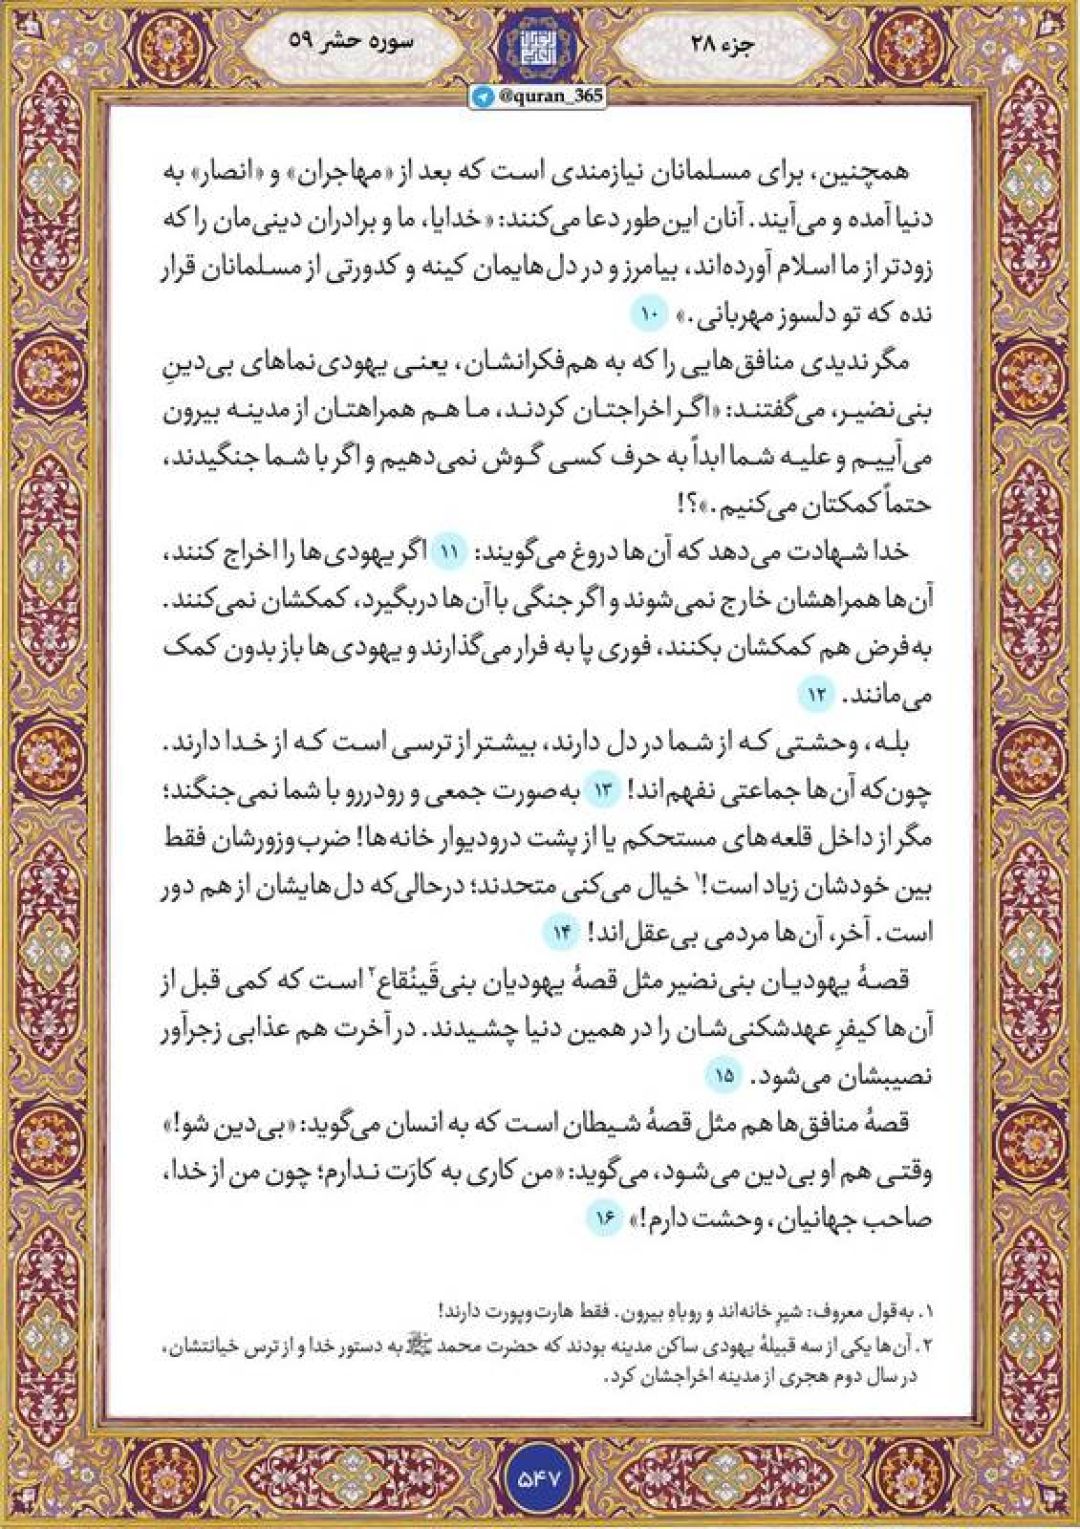 جزء ۲۸
سوره حشر ۵۹
@quran_365
همچنین، برای مسلمانان نیازمندی است که بعد از «مهاجران» و «انصار» به
دنیا آمده و می‌آیند. آنان این‌طور دعا می‌کنند: «خدایا، ما و برادران دینی‌مان را که
زودتر از ما اسلام آورده‌اند، بیامرز و در دل‌هایمان کینه و کدورتی از مسلمانان قرار
نده که تو دلسوز مهربانی.» ۱۰
مگر ندیدی منافق‌هایی را که به هم‌فکرانشان، یعنی یهودی‌نماهای بی‌دینِ
بنی‌نضیر، می‌گفتند: «اگر اخراجتان کردند، ما هم همراهتان از مدینه بیرون
می‌آییم و علیه شما ابداً به حرف کسی گوش نمی‌دهیم و اگر با شما جنگیدند،
حتماً کمکتان می‌کنیم.»؟!
خدا شهادت می‌دهد که آن‌ها دروغ می‌گویند: ۱۱ اگر یهودی‌ها را اخراج کنند،
آن‌ها همراهشان خارج نمی‌شوند و اگر جنگی با آن‌ها دربگیرد، کمکشان نمی‌کنند.
به‌فرض هم کمکشان بکنند، فوری پا به فرار می‌گذارند و یهودی‌ها باز بدون کمک
می‌مانند. ۱۲
بله، وحشتی که از شما در دل دارند، بیشتر از ترسی است که از خدا دارند.
چون‌که آن‌ها جماعتی نفهم‌اند! ۱۳ به‌صورت جمعی و رودررو با شما نمی‌جنگند؛
مگر از داخل قلعه‌های مستحکم یا از پشت درودیوار خانه‌ها! ضرب‌وزورشان فقط
بین خودشان زیاد است!۱ خیال می‌کنی متحدند؛ درحالی‌که دل‌هایشان از هم دور
است. آخر، آن‌ها مردمی بی‌عقل‌اند! ۱۴
قصهٔ یهودیان بنی‌نضیر مثل قصهٔ یهودیان بنی‌قَینُقاع۲ است که کمی قبل از
آن‌ها کیفرِ عهدشکنی‌شان را در همین دنیا چشیدند. در آخرت هم عذابی زجرآور
نصیبشان می‌شود. ۱۵
قصهٔ منافق‌ها هم مثل قصهٔ شیطان است که به انسان می‌گوید: «بی‌دین شو!»
وقتی هم او بی‌دین می‌شود، می‌گوید: «من کاری به کارَت ندارم؛ چون من از خدا،
صاحب جهانیان، وحشت دارم!» ۱۶
۱. به‌قول معروف: شیرِ خانه‌اند و روباهِ بیرون. فقط هارت‌وپورت دارند!
۲. آن‌ها یکی از سه قبیلهٔ یهودی ساکن مدینه بودند که حضرت محمد ﷺ به دستور خدا و از ترس خیانتشان،
در سال دوم هجری از مدینه اخراجشان کرد.
۵۴۷